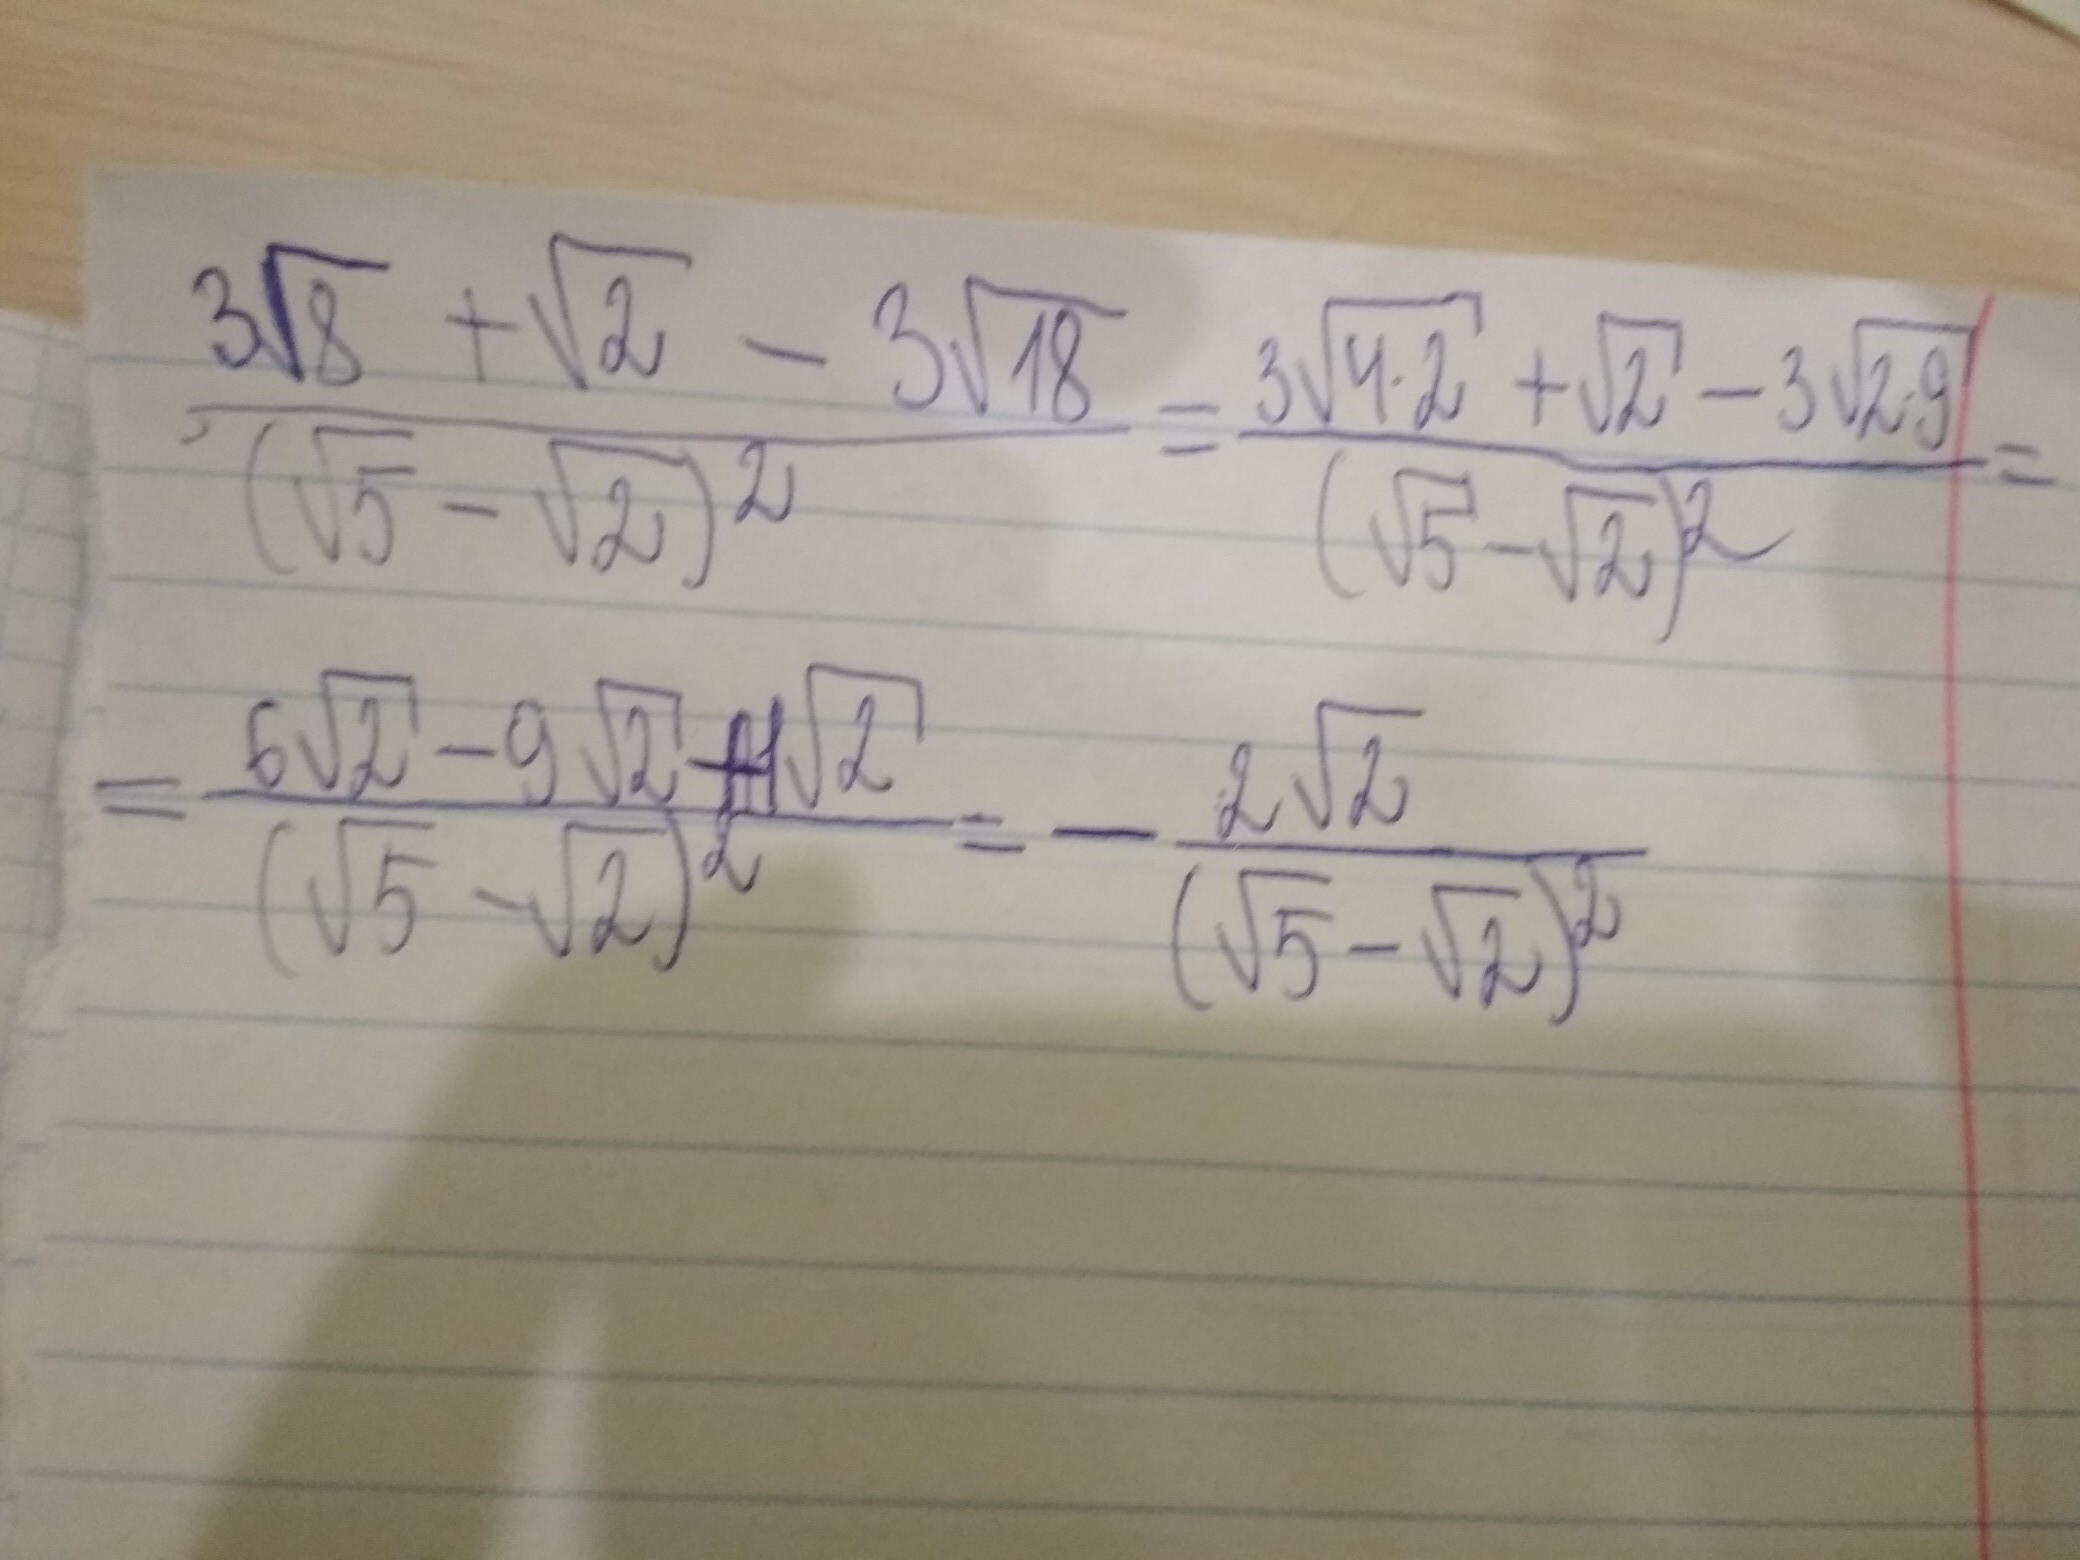 (3√8 + √2 - 3√18)/(√5 - √2)² = (3√4·2 + √2 - 3√2·9)/(√5 - √2)² =
= (6√2 - 9√2 + 1√2)/(√5 - √2)² = - 2√2/(√5 - √2)²